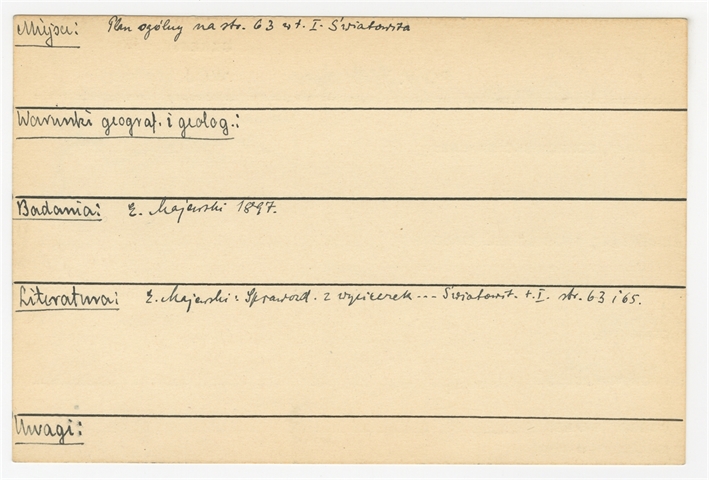 Miejsce: Plan ogólny na str. 63 w t. I. Światowita
Warunki geograf. i geolog.:
Badania: E. Majewski 1897.
Literatura: E. Majewski: Sprawozd. z wycieczek --- Światowit. t. I. str. 63 i 65.
Uwagi: